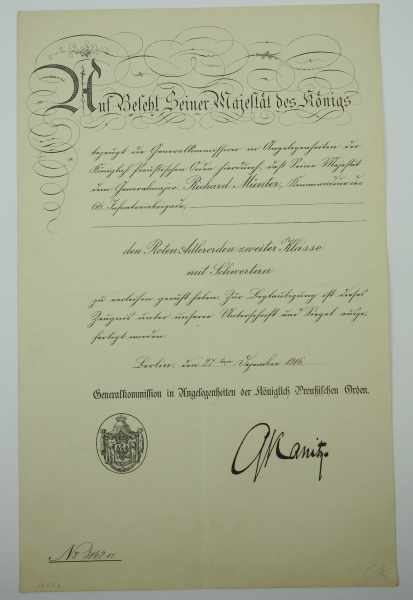 Auf Befehl Seiner Majestät des Königs
bezeugt die Generalkommission in Angelegenheiten der
Königlich Preußischen Orden hierdurch, daß Seine Majestät
dem Generalmajor Richard Münter, Kommandeur der
Infanteriebrigade,
den Roten Adlerorden zweiter Klasse
mit Schwertern
zu verleihen geruht haben. Zur Beglaubigung ist dieses
Zeugnis unter unserer Unterschrift und Siegel ausge-
fertigt worden.
Berlin, den 27. Dezember 1916.
Generalkommission in Angelegenheiten der Königlich Preußischen Orden.
Kanitz.
No